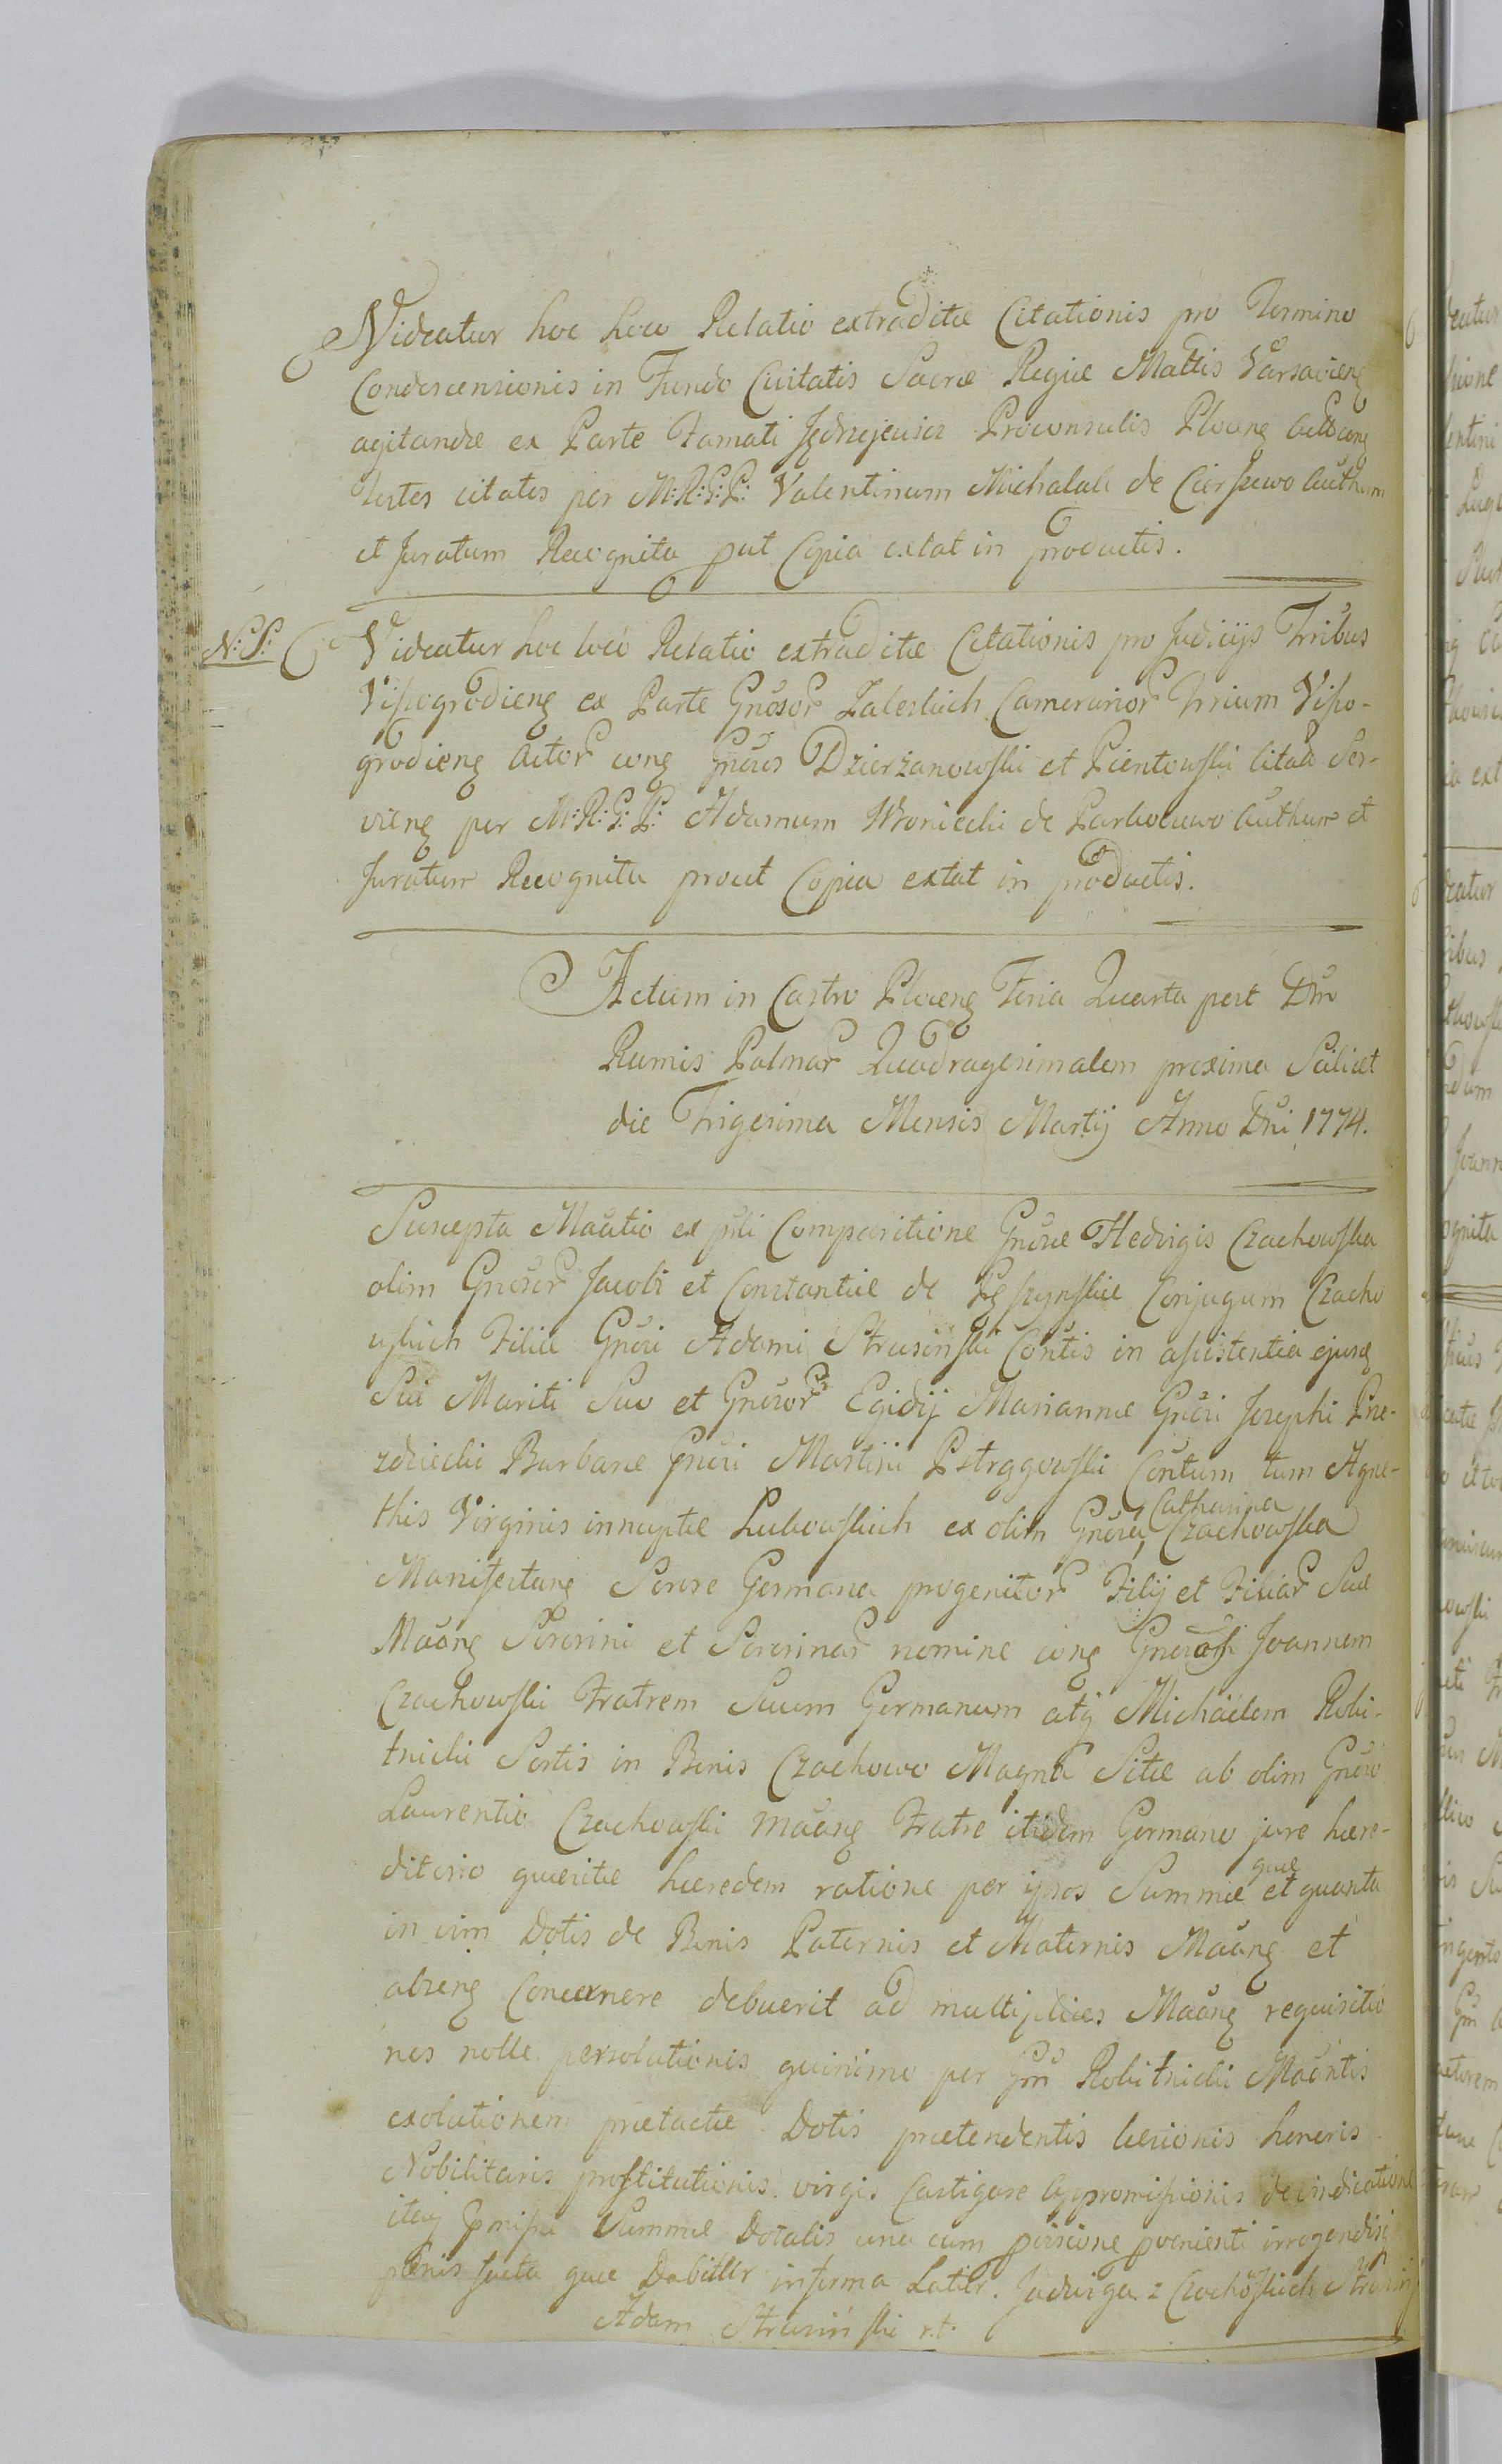 Videatur hoc loco Relatio extraditæ Citationis pro Termino
Condescensionis in Fundo Civitatis Sacræ Regiæ Mattis Varsavieng
agitandæ ex Parte Famati Jędrzejewicz Proconsulis Ploceng
testes citatos per M:R:G:P: Valentinum Michalak de Cierszewo authum
et Juratum Recognita put Copia extat in productis.
N: P: Videatur hoc loco Relatio extraditæ Citationis pro Judicijs Trribus
Vissogrodieng ex Parte Gnosor Zaleskich Camerarior Trrium Visso-
grodieng Actor cong Gnosos Dzierżanowski et Pientowski Citatos Ser-
vieng per M:R:G:P: Adamum Wroniecki de authum et
Juratum Recognita prout Copia extat in productis.
Actum in Castro Ploceng Feria Quarta post Dnm
Ramis Palmar Quadragesimalem proxima Scilicet
die Trigesima Mensis Martij Anno Dni 1774.
Suscepta Maatio ex psti Comparitione Gnosæ Hedvigis Czachowska
olim Gnosor Jacobi et Constantiæ de Conjugum Czacho
wskich Filiæ Gnosi Adami Strusinski Contis in assistentia ejusq
Sui Mariti Suo et Gnosor Egidij Mariannæ Gnosi Josephi Prze-
zdziecki Barbaræ Gnosi Martini Pstrągowski Contum tum Agne-
this Virginis innuptæ Lubowskich ex olim Gnosa Catharina Czachowska
Manifestang Sorore Germana progenitor Filij et Filiar Suæ
Maang Sororini et Sororinar nomine cong Gnosos Joannem
Czachowski Fratrem Suum Germanum atq Michäelem Robi-
tnicki Sortis in Bonis Czachowo Magna Sitæ ab olim Gnoso
Laurentio Czachowski Maang Fratre itidem Germano jure hære-
ditario quæsitæ hæredem ratione per ipsos Summæ quæ et quanta
in vim Dotis de Bonis Paternis et Maternis Maang et
abseng Concernere debuerit ad multiplices Maang requisitio
nes nolle persolutionis quinimo per Gm Robitnicki Maantis
exolutionem prætactæ Dotis prætendentis læsionis honoris
Nobilitaris prostitutionis virgis Castigare appromissionis de vindicatione
itaq præmissa Summæ Dotalis una cum pœnis irrogandisq
pænis facta quæ Dabitur in forma Latior. Jadwiga z Czachowskich
Adam Strusinski r.t.